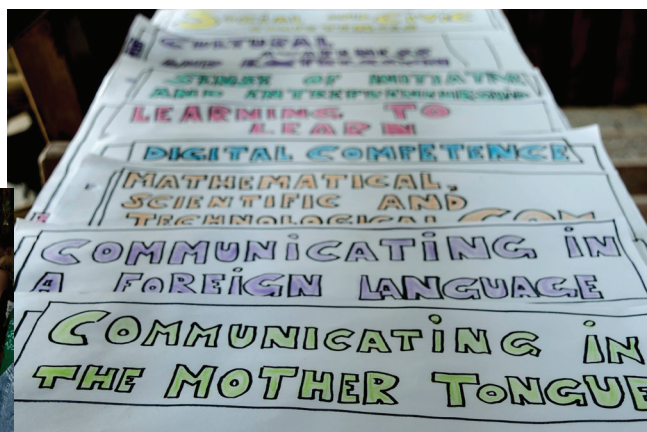 SOCIAL AND CIVIC
CULTURAL
AWARENESS
AND EXPRESSION
SENSE OF INITIATIVE
AND ENTREPRENEURSHIP
LEARNING TO
LEARN
DIGITAL COMPETENCE
MATHEMATICAL,
SCIENTIFIC AND
TECHNOLOGICAL COM
COMMUNICATING IN
A FOREIGN LANGUAGE
COMMUNICATING IN
THE MOTHER TONGUE